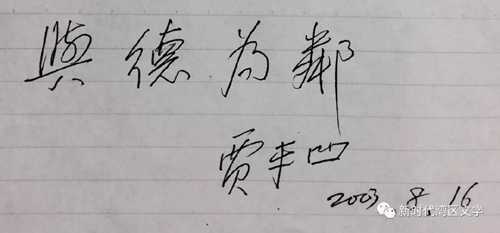 與德为鄰
贾平凹
2003 8.16
新时代湾区文学